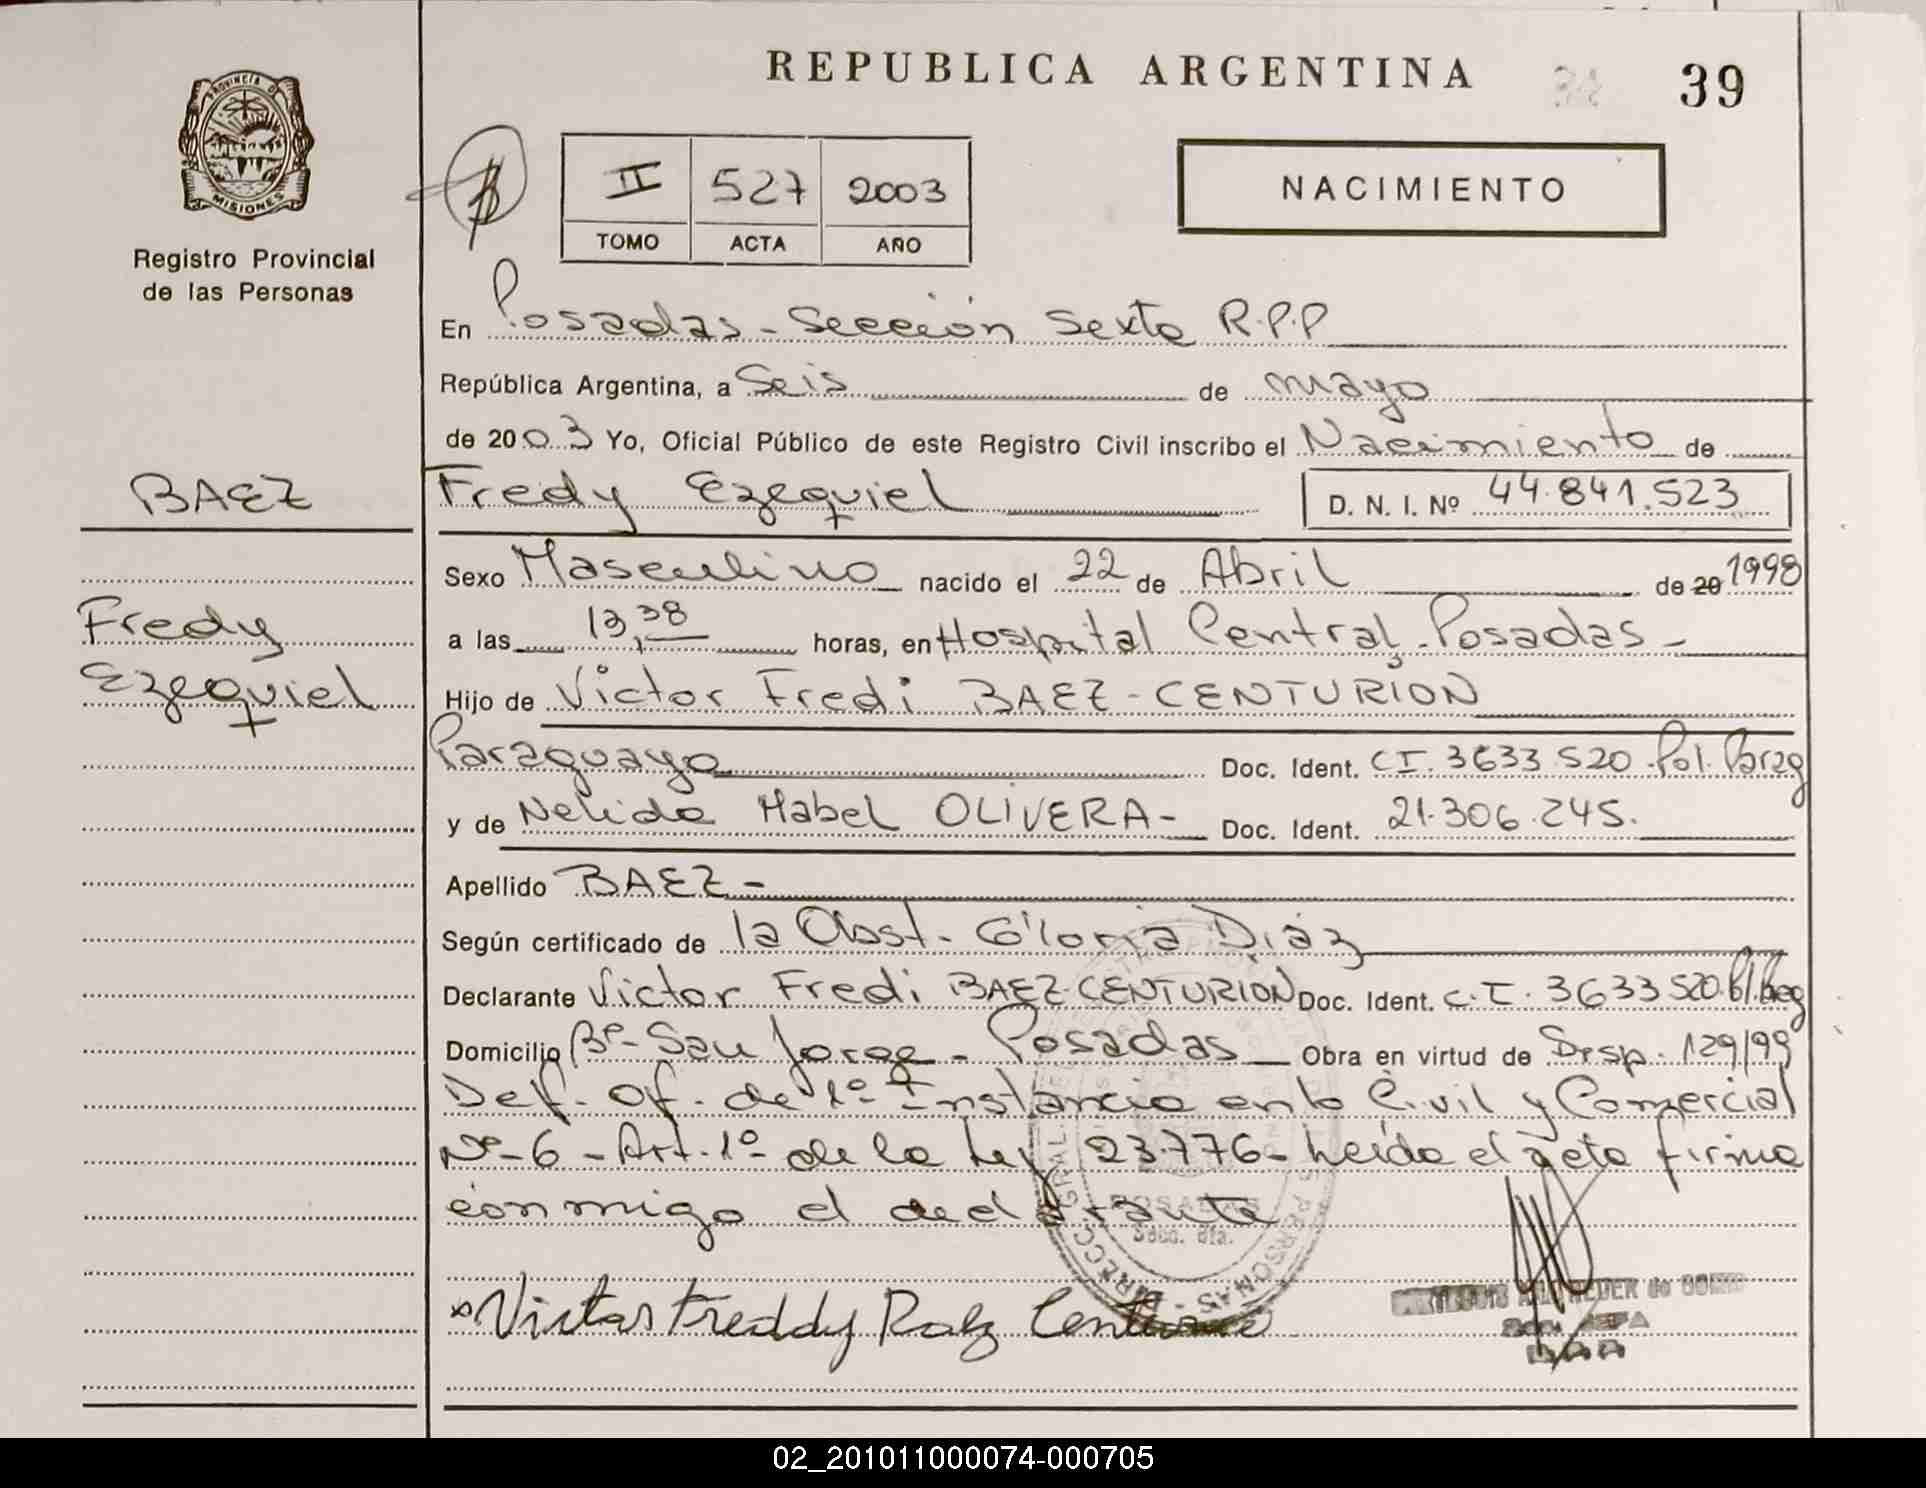 REPUBLICA ARGENTINA
39
PROVINCIA D
MISIONES
Registro Provincial
de las Personas
II 527 2003
TOMO ACTA AÑO
NACIMIENTO
En Posadas - Sección Sexta R.P.P
República Argentina, a Seis de mayo
de 2003 Yo, Oficial Público de este Registro Civil inscribo el Nacimiento de
BAEZ
Fredy Ezequiel D. N. I. Nº 44.841.523
Sexo Masculino nacido el 22 de Abril de 20 1998
Fredy
Ezequiel
a las 13,38 horas, en Hospital Central - Posadas -
Hijo de Victor Fredi BAEZ - CENTURION
Paraguayo Doc. Ident. CI. 3633520 - Pol. Parag
y de Nelida Mabel OLIVERA - Doc. Ident. 21.306.245.
Apellido BAEZ -
Según certificado de la Obst. Gloria Diaz
Declarante Victor Fredi BAEZ-CENTURION Doc. Ident. C.I. 3633520.
Domicilio Bº - San Jorge - Posadas Obra en virtud de Disp. 129/99
Def. Of. de 1º Instancia en lo Civil y Comercial
Nº - 6 - Art. 1º de la Ley 23.776 - Leída el acta firma
conmigo el declarante
POSADAS
Victor Freddy Baez
02_201011000074-000705